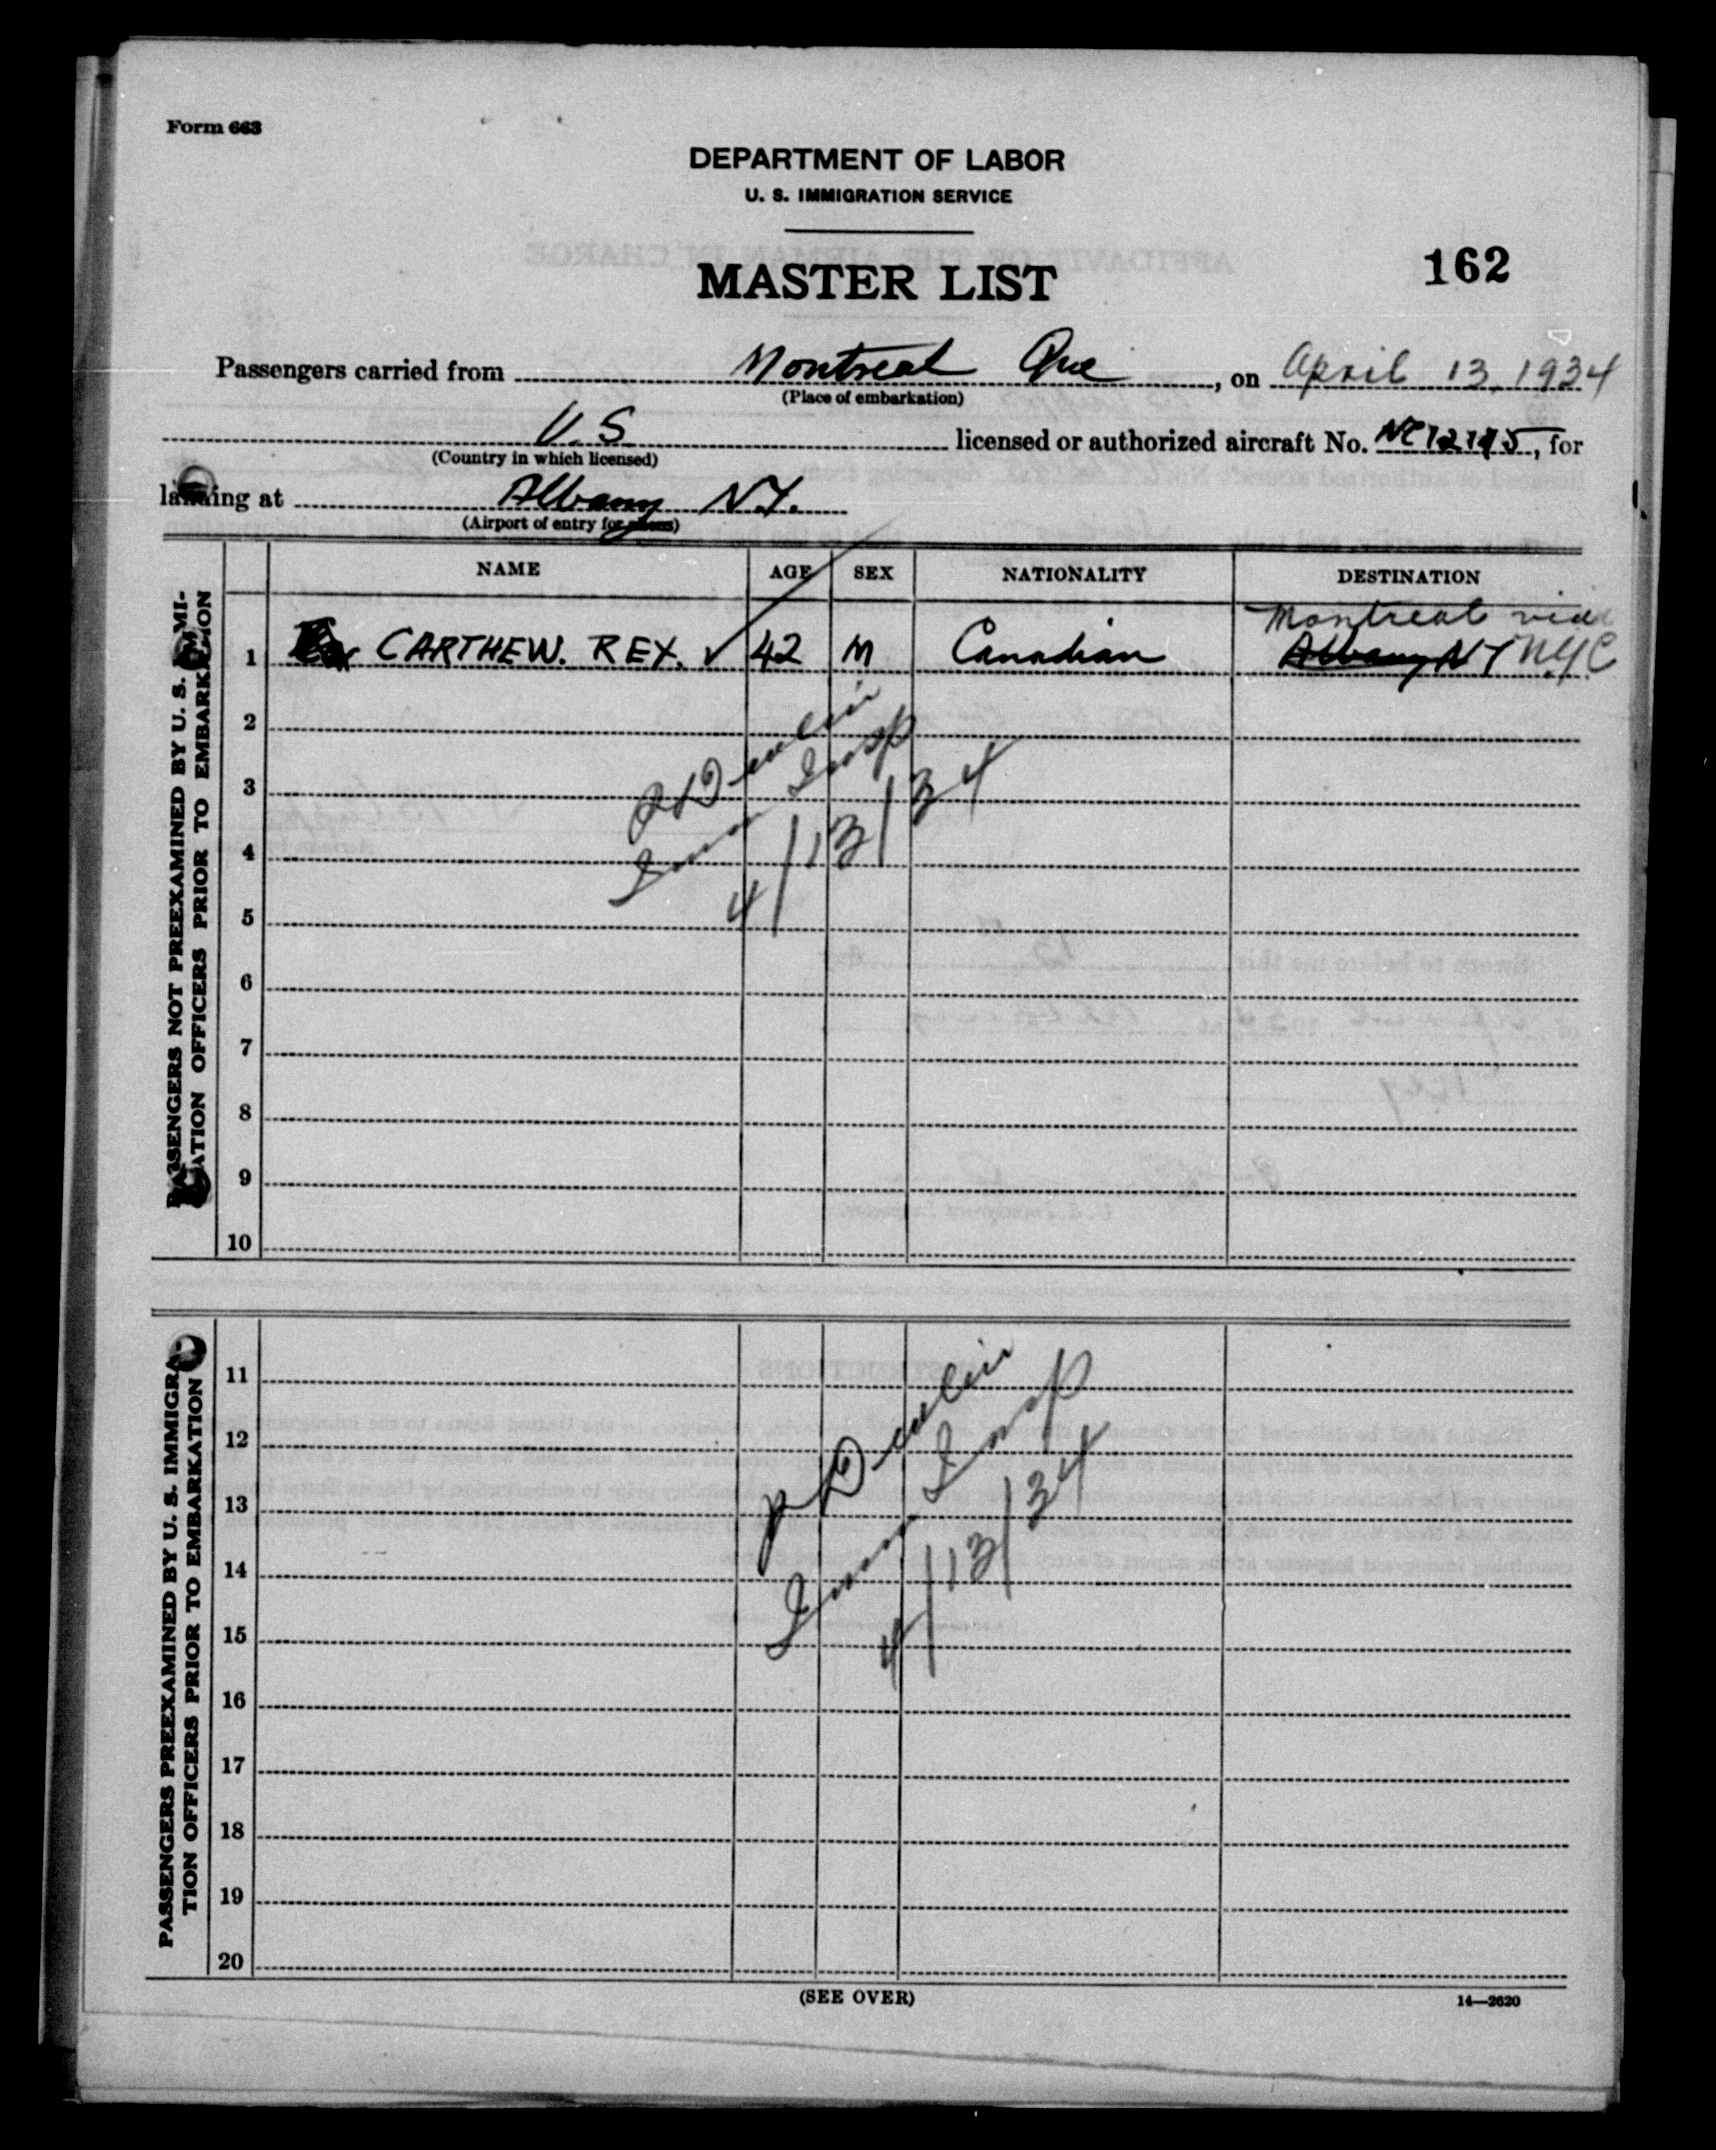 Form 663
DEPARTMENT OF LABOR
U. S. IMMIGRATION SERVICE
MASTER LIST
162
Passengers carried from Montreal Que, on April 13, 1934
(Place of embarkation)
U.S licensed or authorized aircraft No. NC12195, for
(Country in which licensed)
landing at Albany N.Y.
(Airport of entry for aliens)
NAME AGE SEX NATIONALITY DESTINATION
PASSENGERS NOT PREEXAMINED BY U. S. IMMI-
GRATION OFFICERS PRIOR TO EMBARKATION
Montreal via
1 CARTHEW. REX. ✓ 42 M Canadian Albany NY NYC
2
3
4
5
6
7
8
9
10
Imm Insp
4/13/34
PASSENGERS PREEXAMINED BY U. S. IMMIGRA-
TION OFFICERS PRIOR TO EMBARKATION
11
12
13
14
15
16
17
18
19
20
Imm Insp
4/13/34
(SEE OVER)
14—2620